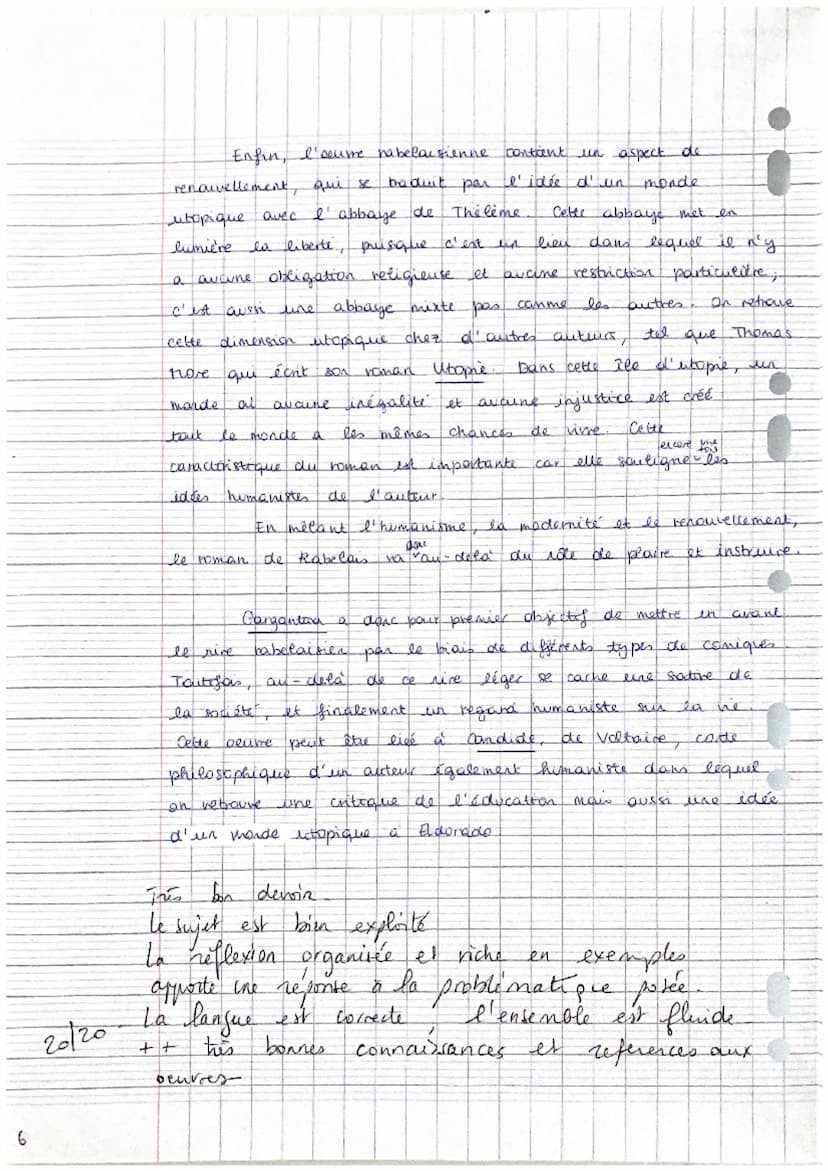 Enfin, l'oeuvre rabelaisienne contient un aspect de
renouvellement, qui se traduit par l'idée d'un monde
utopique avec l'abbaye de Thélème. Cette abbaye met en
lumière la liberté, puisque c'est un lieu dans lequel il n'y
a aucune obligation religieuse et aucune restriction particulière,
c'est aussi une abbaye mixte pas comme les autres. On retrouve
cette dimension utopique chez d'autres auteurs, tel que Thomas
More qui écrit son roman Utopie. Dans cette île d'utopie, un
monde où aucune inégalité et aucune injustice est créé :
tout le monde a les mêmes chances de vivre. Cette
caractéristique du roman est importante car elle souligne encore une fois les
idées humanistes de l'auteur.
En mêlant l'humanisme, la modernité et le renouvellement,
le roman de Rabelais va donc au-delà du rôle de plaire et instruire.
Gargantua a donc pour premier objectif de mettre en avant
le rire rabelaisien par le biais de différents types de comiques.
Toutefois, au-delà de ce rire léger se cache une satire de
la société, et finalement un regard humaniste sur la vie.
Cette oeuvre peut être lié à Candide, de Voltaire, conte
philosophique d'un auteur également humaniste dans lequel
on retrouve une critique de l'éducation mais aussi une idée
d'un monde utopique à Eldorado
Très bon devoir.
Le sujet est bien exploité
La réflexion organisée et riche en exemples
apporte une réponse à la problématique posée.
La langue est correcte, l'ensemble est fluide
20/20 ++ très bonnes connaissances et references aux
oeuvres
6